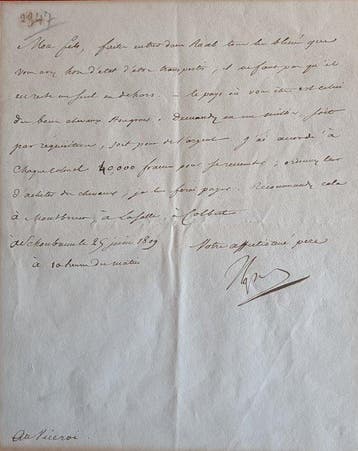 2947
Mon fils, faites entrer dans Raab tous les blessés que
vous avez hors d'état d'être transportés, il ne faut pas qu'il
en reste un seul en dehors. - Le pays où vous êtes est celui
des beaux chevaux Hongrois. Demandez en un millier, soit
par requisition, soit pour de l'argent. J'ai accordé à
Chaque Colonel 40,000 francs pour ses remontes; ordonnez leur
d'acheter des chevaux, je les ferai payer. Recommandez cela
à Montbrun, à La Salle, à Colbert.
à Schonbrunn le 25 juin 1809
à 10 heures du matin
Votre affectionné père
Np
Au Viceroi.